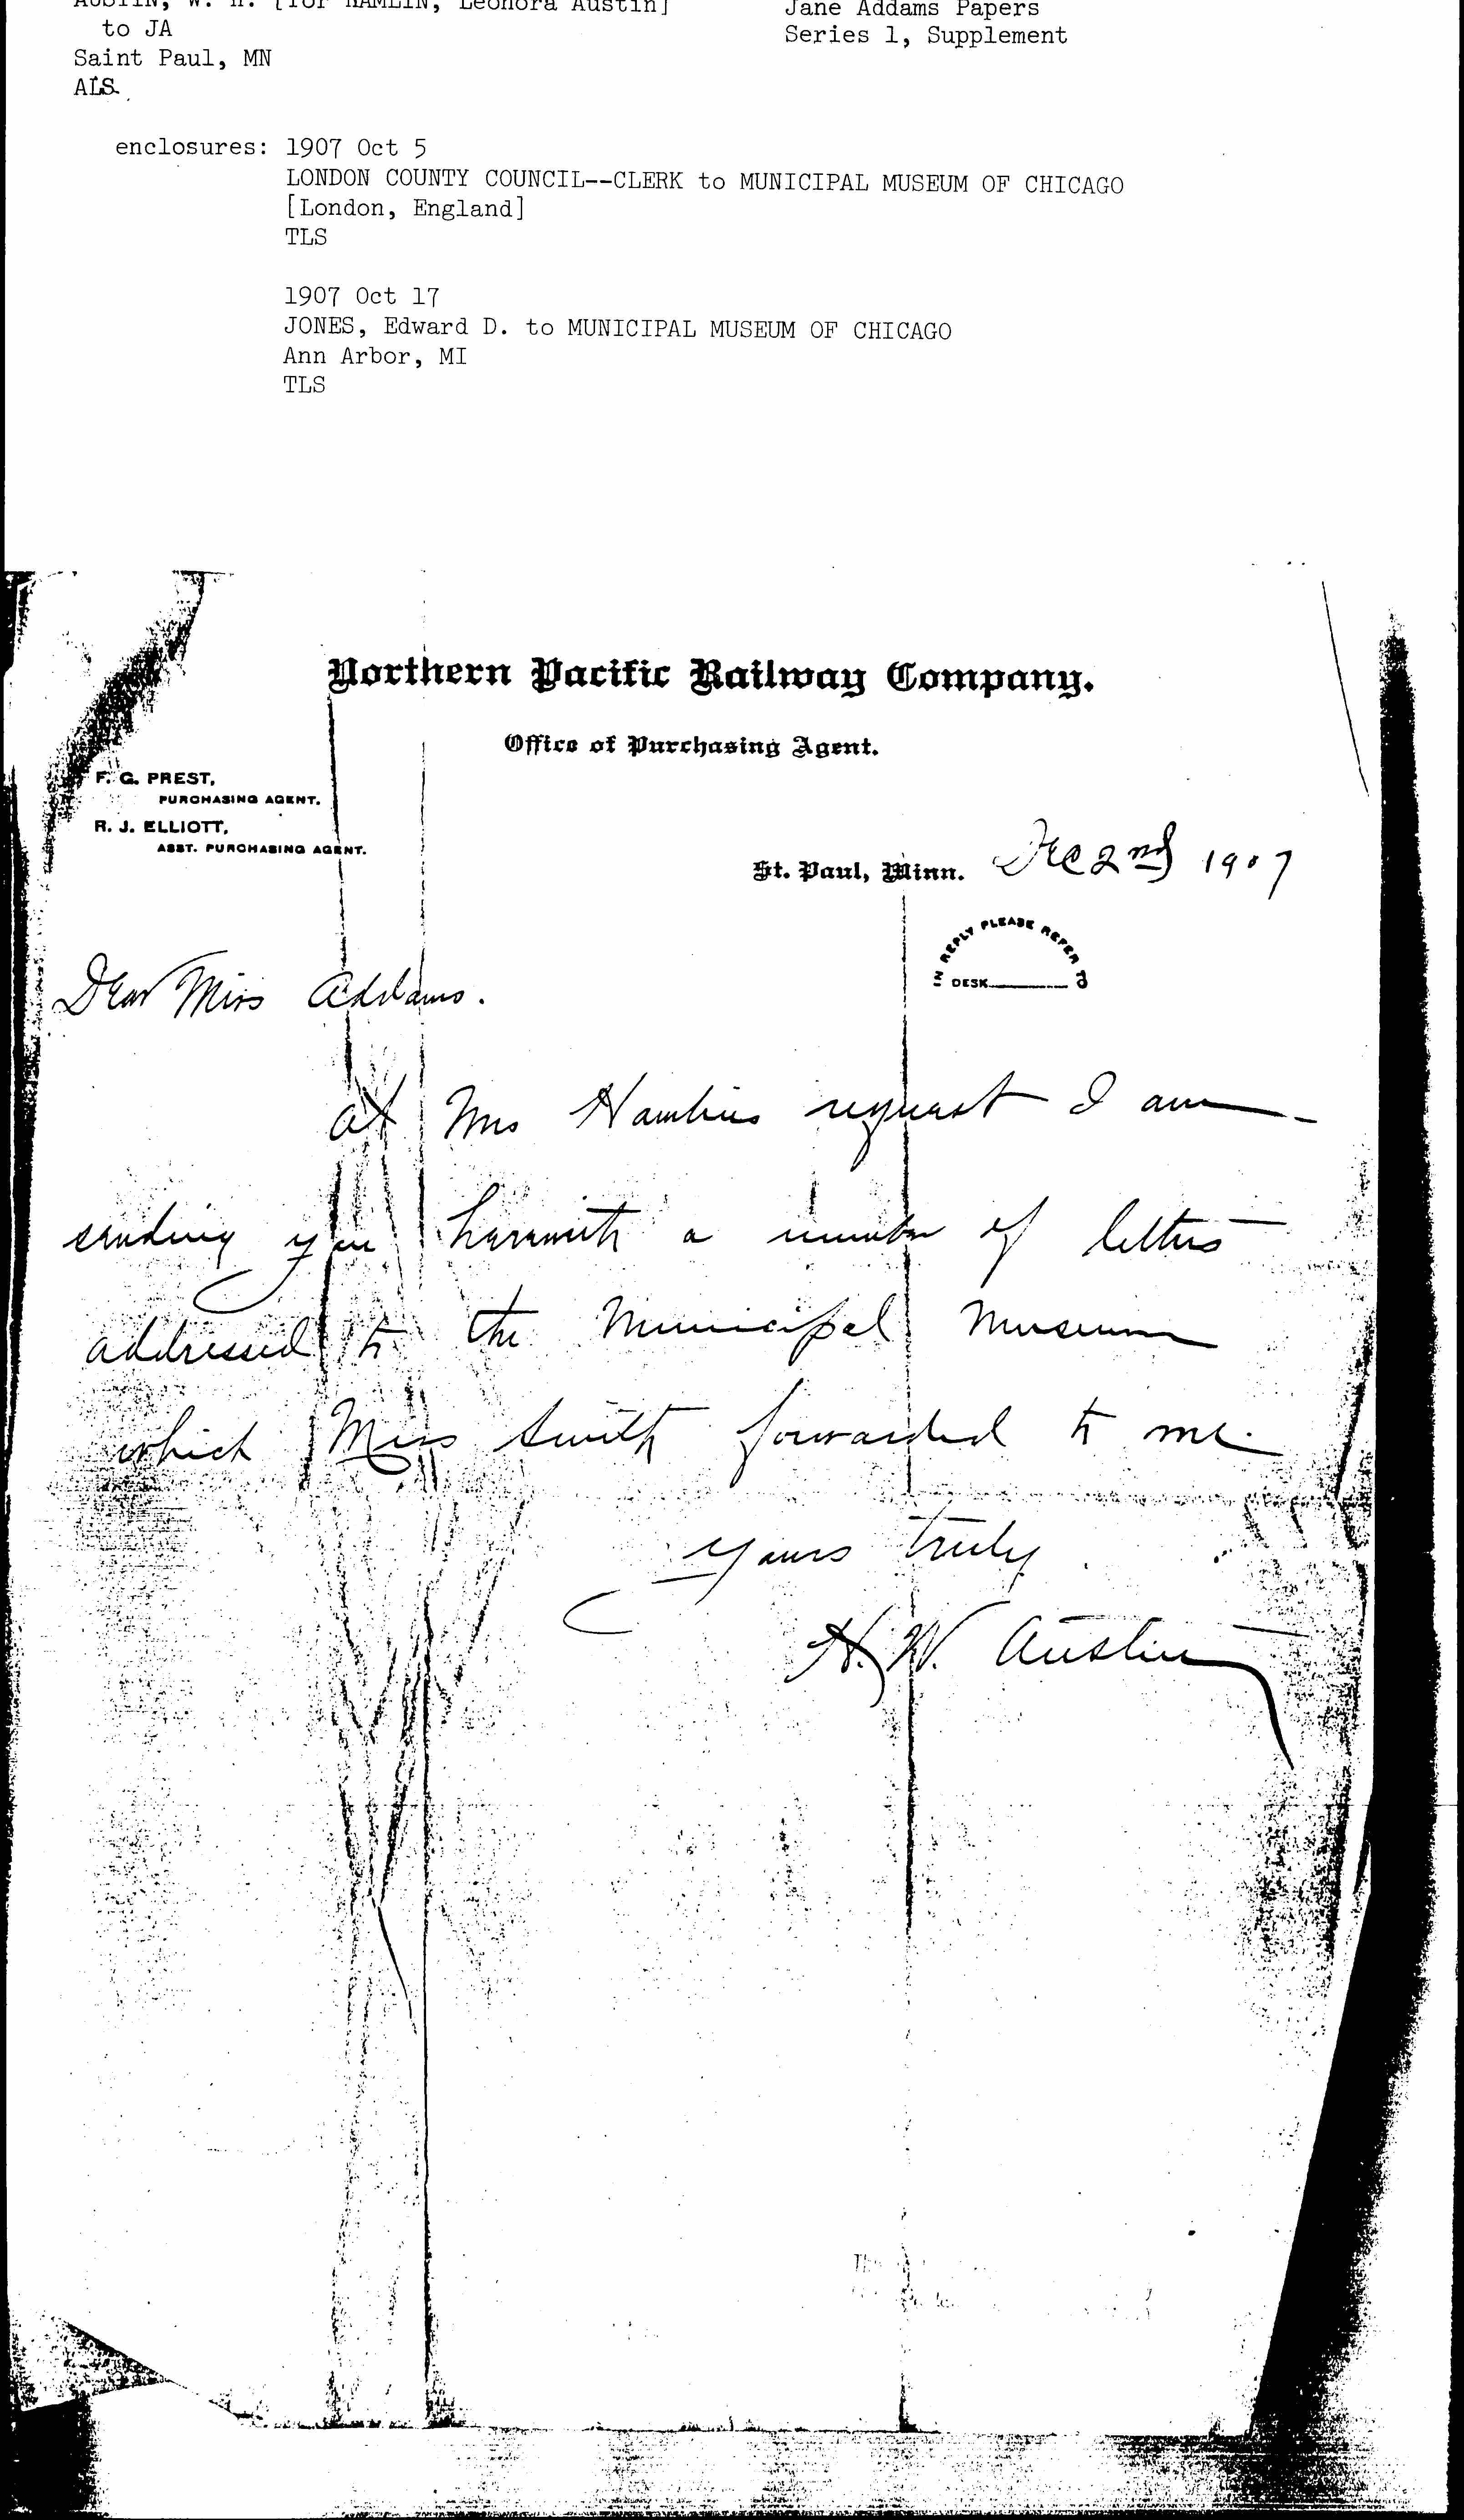 AUSTIN, W. H. [for HAMLIN, Leonora Austin]
Jane Addams Papers
to JA
Series 1, Supplement
Saint Paul, MN
ALS.
enclosures: 1907 Oct 5
LONDON COUNTY COUNCIL--CLERK to MUNICIPAL MUSEUM OF CHICAGO
[London, England]
TLS
1907 Oct 17
JONES, Edward D. to MUNICIPAL MUSEUM OF CHICAGO
Ann Arbor, MI
TLS
Northern Pacific Railway Company.
Office of Purchasing Agent.
F. G. PREST,
PURCHASING AGENT.
R. J. ELLIOTT,
ASST. PURCHASING AGENT.
St. Paul, Minn. Dec 2nd 1907
IN REPLY PLEASE REFER TO
DESK
Dear Miss Addams.
At Mrs Hamlins request I am
sending you herewith a number of letters
addressed to the Municipal Museum
which Miss Smith forwarded to me.
Yours truly
H. W. Austin